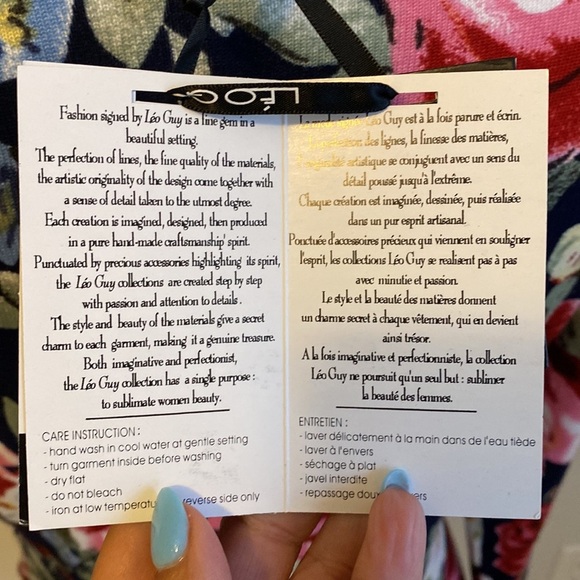 LÉO G
Fashion signed by Léo Guy is a fine gem in a
beautiful setting.
The perfection of lines, the fine quality of the materials,
the artistic originality of the design come together with
a sense of detail taken to the utmost degree.
Each creation is imagined, designed, then produced
in a pure hand-made craftsmanship' spirit.
Punctuated by precious accessories highlighting its spirit,
the Léo Guy collections are created step by step
with passion and attention to details.
The style and beauty of the materials give a secret
charm to each garment, making it a genuine treasure.
Both imaginative and perfectionist,
the Léo Guy collection has a single purpose :
to sublimate women beauty.
CARE INSTRUCTION :
- hand wash in cool water at gentle setting
- turn garment inside before washing
- dry flat
- do not bleach
- iron at low temperatu reverse side only
Léo Guy est à la fois parure et écrin.
des lignes, la finesse des matières,
artistique se conjuguent avec un sens du
détail poussé jusqu'à l'extrême.
Chaque création est imaginée, dessinée, puis réalisée
dans un pur esprit artisanal.
Ponctuée d'accessoires précieux qui viennent en souligner
l'esprit, les collections Léo Guy se realisent pas à pas
avec minutie et passion.
Le style et la beauté des matières donnent
un charme secret à chaque vêtement, qui en devient
ainsi trésor.
A la fois imaginative et perfectionniste, la collection
Léo Guy ne poursuit qu'un seul but : sublimer
la beauté des femmes.
ENTRETIEN :
- laver délicatement à la main dans de l'eau tiède
- laver à l'envers
- séchage à plat
- javel interdite
- repassage doux ers